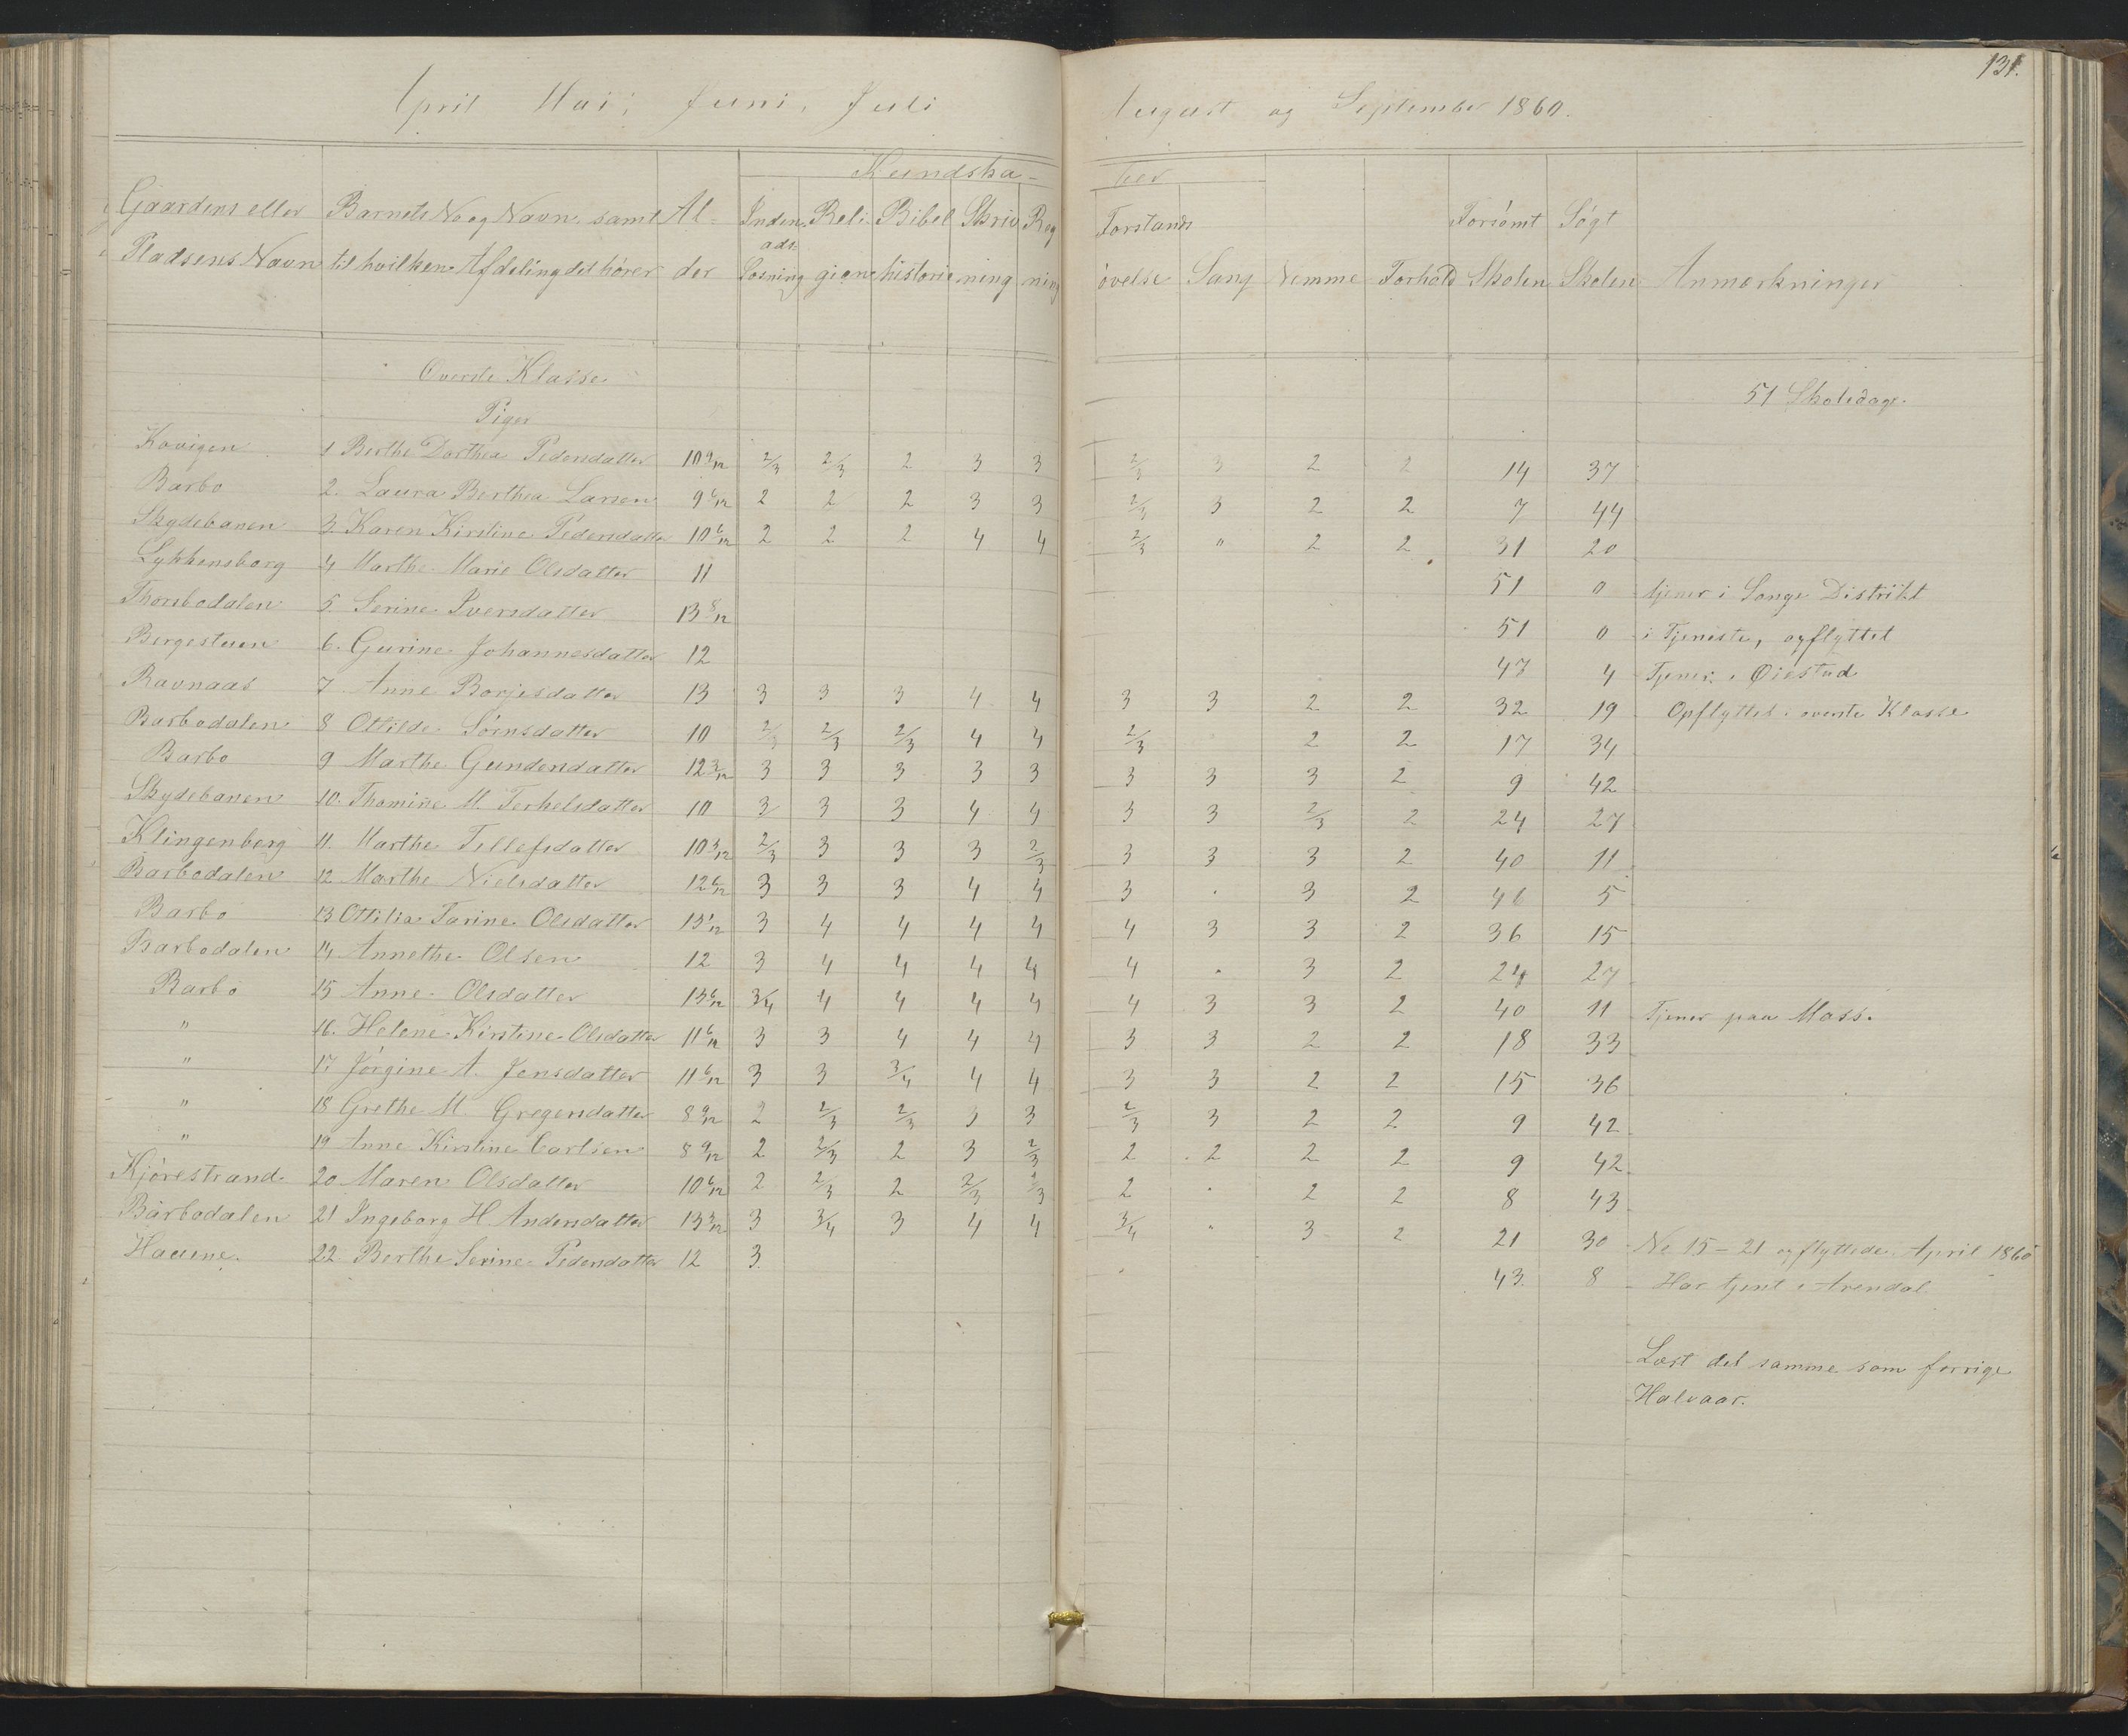 131.
April Mai, Juni, Juli August og September 1860.
Kundska- ber
Gaardens eller Barnets No og Navn samt Al- Inden- Reli- Bibel Skriv Reg Forstands Forsömt Sögt
ads-
Pladsens Navn til hvilken Afdeling det hörer der Læsning gion historie ning ning övelse Sang Nemme Forhold Skolen Skolen Anmærkninger
Överste Klasse 51 Skoledage.
Piger
Kovigen 1 Berthe Dorthea Pedersdatter 10 9/12 2/3 2/3 2 3 3 2/3 3 2 2 14 37
Barbo 2. Laura Berthea Larsen 9 6/12 2 2 2 3 3 2/3 3 2 2 7 44
Skydebanen 3. Karen Kirstine Pedersdatter 10 6/12 2 2 2 4 4 2/3 " 2 2 31 20
Lykkensborg 4 Marthe Marie Olsdatter 11 51 0 tjener i Songe Distrikt
Thorsbodalen 5. Serine Iversdatter 13 8/12 51 0 i Tjeneste, opflyttet
Bergestuen 6. Gurine Johannesdatter 12 47 4 Tjener i Öiestad
Ravnaas 7 Anne Borjesdatter 13 3 3 3 4 4 3 3 2 2 32 19 Opflyttet i överste Klasse
Barbodalen 8 Ottilde Sörnsdatter 10 2/3 2/3 2/3 4 4 2/3 2 2 17 34
Barbo 9 Marthe Gundersdatter 12 3/12 3 3 3 3 3 3 3 3 2 9 42
Skydebanen 10. Thomine M. Terkelsdatter 10 3 3 3 4 4 3 3 2/3 2 24 27
Klingenberg 11. Marthe Tellefsdatter 10 3/12 2/3 3 3 3 2/3 3 3 3 2 40 11
Barbodalen 12 Marthe Nielsdatter 12 6/12 3 3 3 4 4 3 . 3 2 46 5
Barbo 13 Ottilia Tarine Olsdatter 13 1/12 3 4 4 4 4 4 3 3 2 36 15
Barbodalen 14 Annethe Olsen 12 3 4 4 4 4 4 . 3 2 24 27
Barbo 15 Anne Olsdatter 13 6/12 3/4 4 4 4 4 4 3 3 2 40 11 Tjener paa Moss.
" 16. Helene Kirstine Olsdatter 11 6/12 3 3 4 4 4 3 3 2 2 18 33
" 17. Jörgine A. Jensdatter 11 6/12 3 3 3/4 4 4 3 3 2 2 15 36
" 18 Grethe M. Gregersdatter 8 9/12 2 2/3 2/3 3 3 2/3 3 2 2 9 42
" 19 Anne Kirstine Carlsen 8 9/12 2 2/3 2 3 2/3 2 2 2 2 9 42
Kjörestrand 20 Maren Olsdatter 10 6/12 2 2/3 2 2/3 2/3 2 . 2 2 8 43
Barbodalen 21 Ingeborg H. Andersdatter 13 3/12 3 3/4 3 4 4 3/4 . 3 2 21 30 No 15-21 opflyttede April 1860
Havene. 22 Berthe Serine Pedersdatter 12 3. 43. 8 Har tjent i Arendal
Læst det samme som forrige
Halvaar.